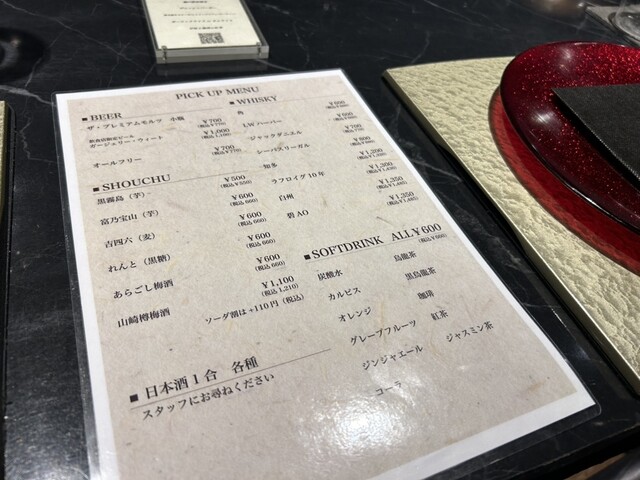 PICK UP MENU
■ BEER
ザ・プレミアムモルツ 小瓶 ¥700
(税込¥770)
飲食店限定ビール
ガージェリー・ウィート ¥1,000
(税込¥1,100)
オールフリー ¥700
(税込¥770)
■ SHOUCHU
黒霧島（芋） ¥500
(税込¥550)
富乃宝山（芋） ¥600
(税込 660)
吉四六（麦） ¥600
(税込 660)
れんと（黒糖） ¥600
(税込 660)
あらごし梅酒 ¥600
(税込 660)
山崎樽梅酒 ¥1,100
(税込 1,210)
ソーダ割は +110 円（税込）
■ 日本酒 1 合 各種
スタッフにお尋ねください
■ WHISKY
角 ¥600
I.W ハーパー ¥600
ジャックダニエル ¥700
シーバスリーガル ¥600
知多 ¥1,200
ラフロイグ 10 年 ¥1,300
白州 ¥1,350
(税込¥1,485)
碧 AO ¥1,350
(税込¥1,485)
■ SOFTDRINK ALL¥600
(税込¥660)
炭酸水
カルピス
オレンジ
グレープフルーツ
ジンジャエール
コーラ
烏龍茶
黒烏龍茶
珈琲
紅茶
ジャスミン茶